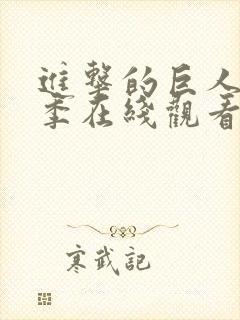 進擊的巨人
季在綫觀看
寒武記